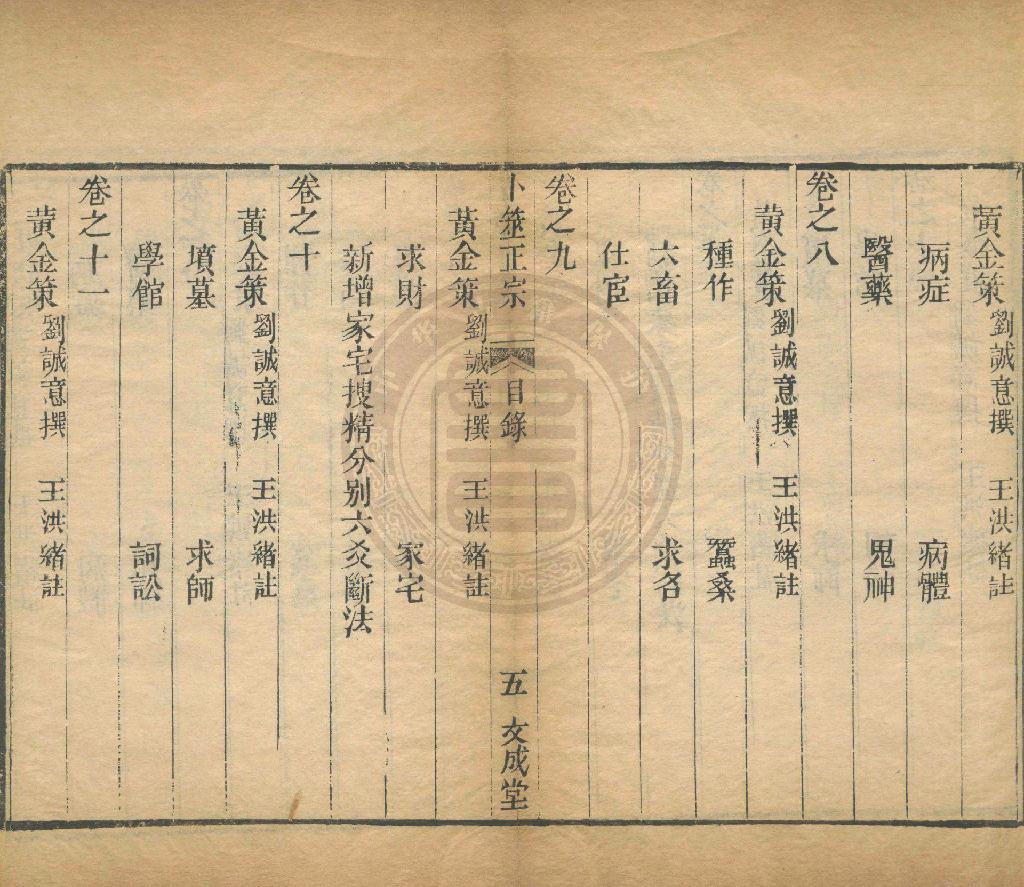 黃金策 劉誠意撰 王洪緒註
病症 病體
醫藥 鬼神
卷之八
黃金策 劉誠意撰 王洪緒註
種作 蠶桑
六畜 求名
仕宦
卷之九
卜筮正宗 目錄 五 文成堂
黃金策 劉誠意撰 王洪緒註
求財 家宅
新增家宅搜精分別六爻斷法
卷之十
黃金策 劉誠意撰 王洪緒註
墳墓 求師
學館 詞訟
卷之十一
黃金策 劉誠意撰 王洪緒註